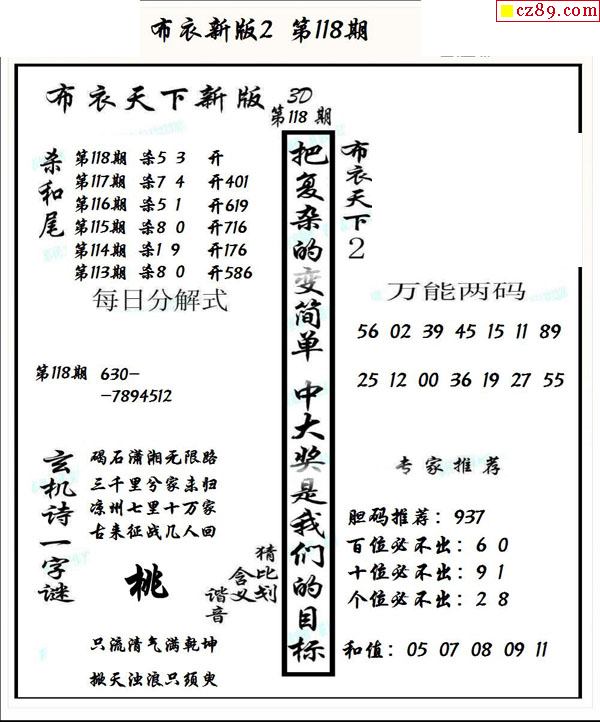 cz89.com
布衣新版2 第118期
布衣天下新版 3D
第118期
杀和尾
第118期 杀53 开
第117期 杀74 开401
第116期 杀51 开619
第115期 杀80 开716
第114期 杀19 开176
第113期 杀80 开586
每日分解式
第118期 630-
-7894512
玄机诗一字谜
碣石潇湘无限路
三千里兮家未归
凉州七里十万家
古来征战几人回
桃
猜比划
含义
谐音
只流清气满乾坤
掀天浊浪只须臾
把复杂的变简单 中大奖是我们的目标
布衣天下2
万能两码
56 02 39 45 15 11 89
25 12 00 36 19 27 55
专家推荐
胆码推荐：937
百位必不出：60
十位必不出：91
个位必不出：28
和值：05 07 08 09 11